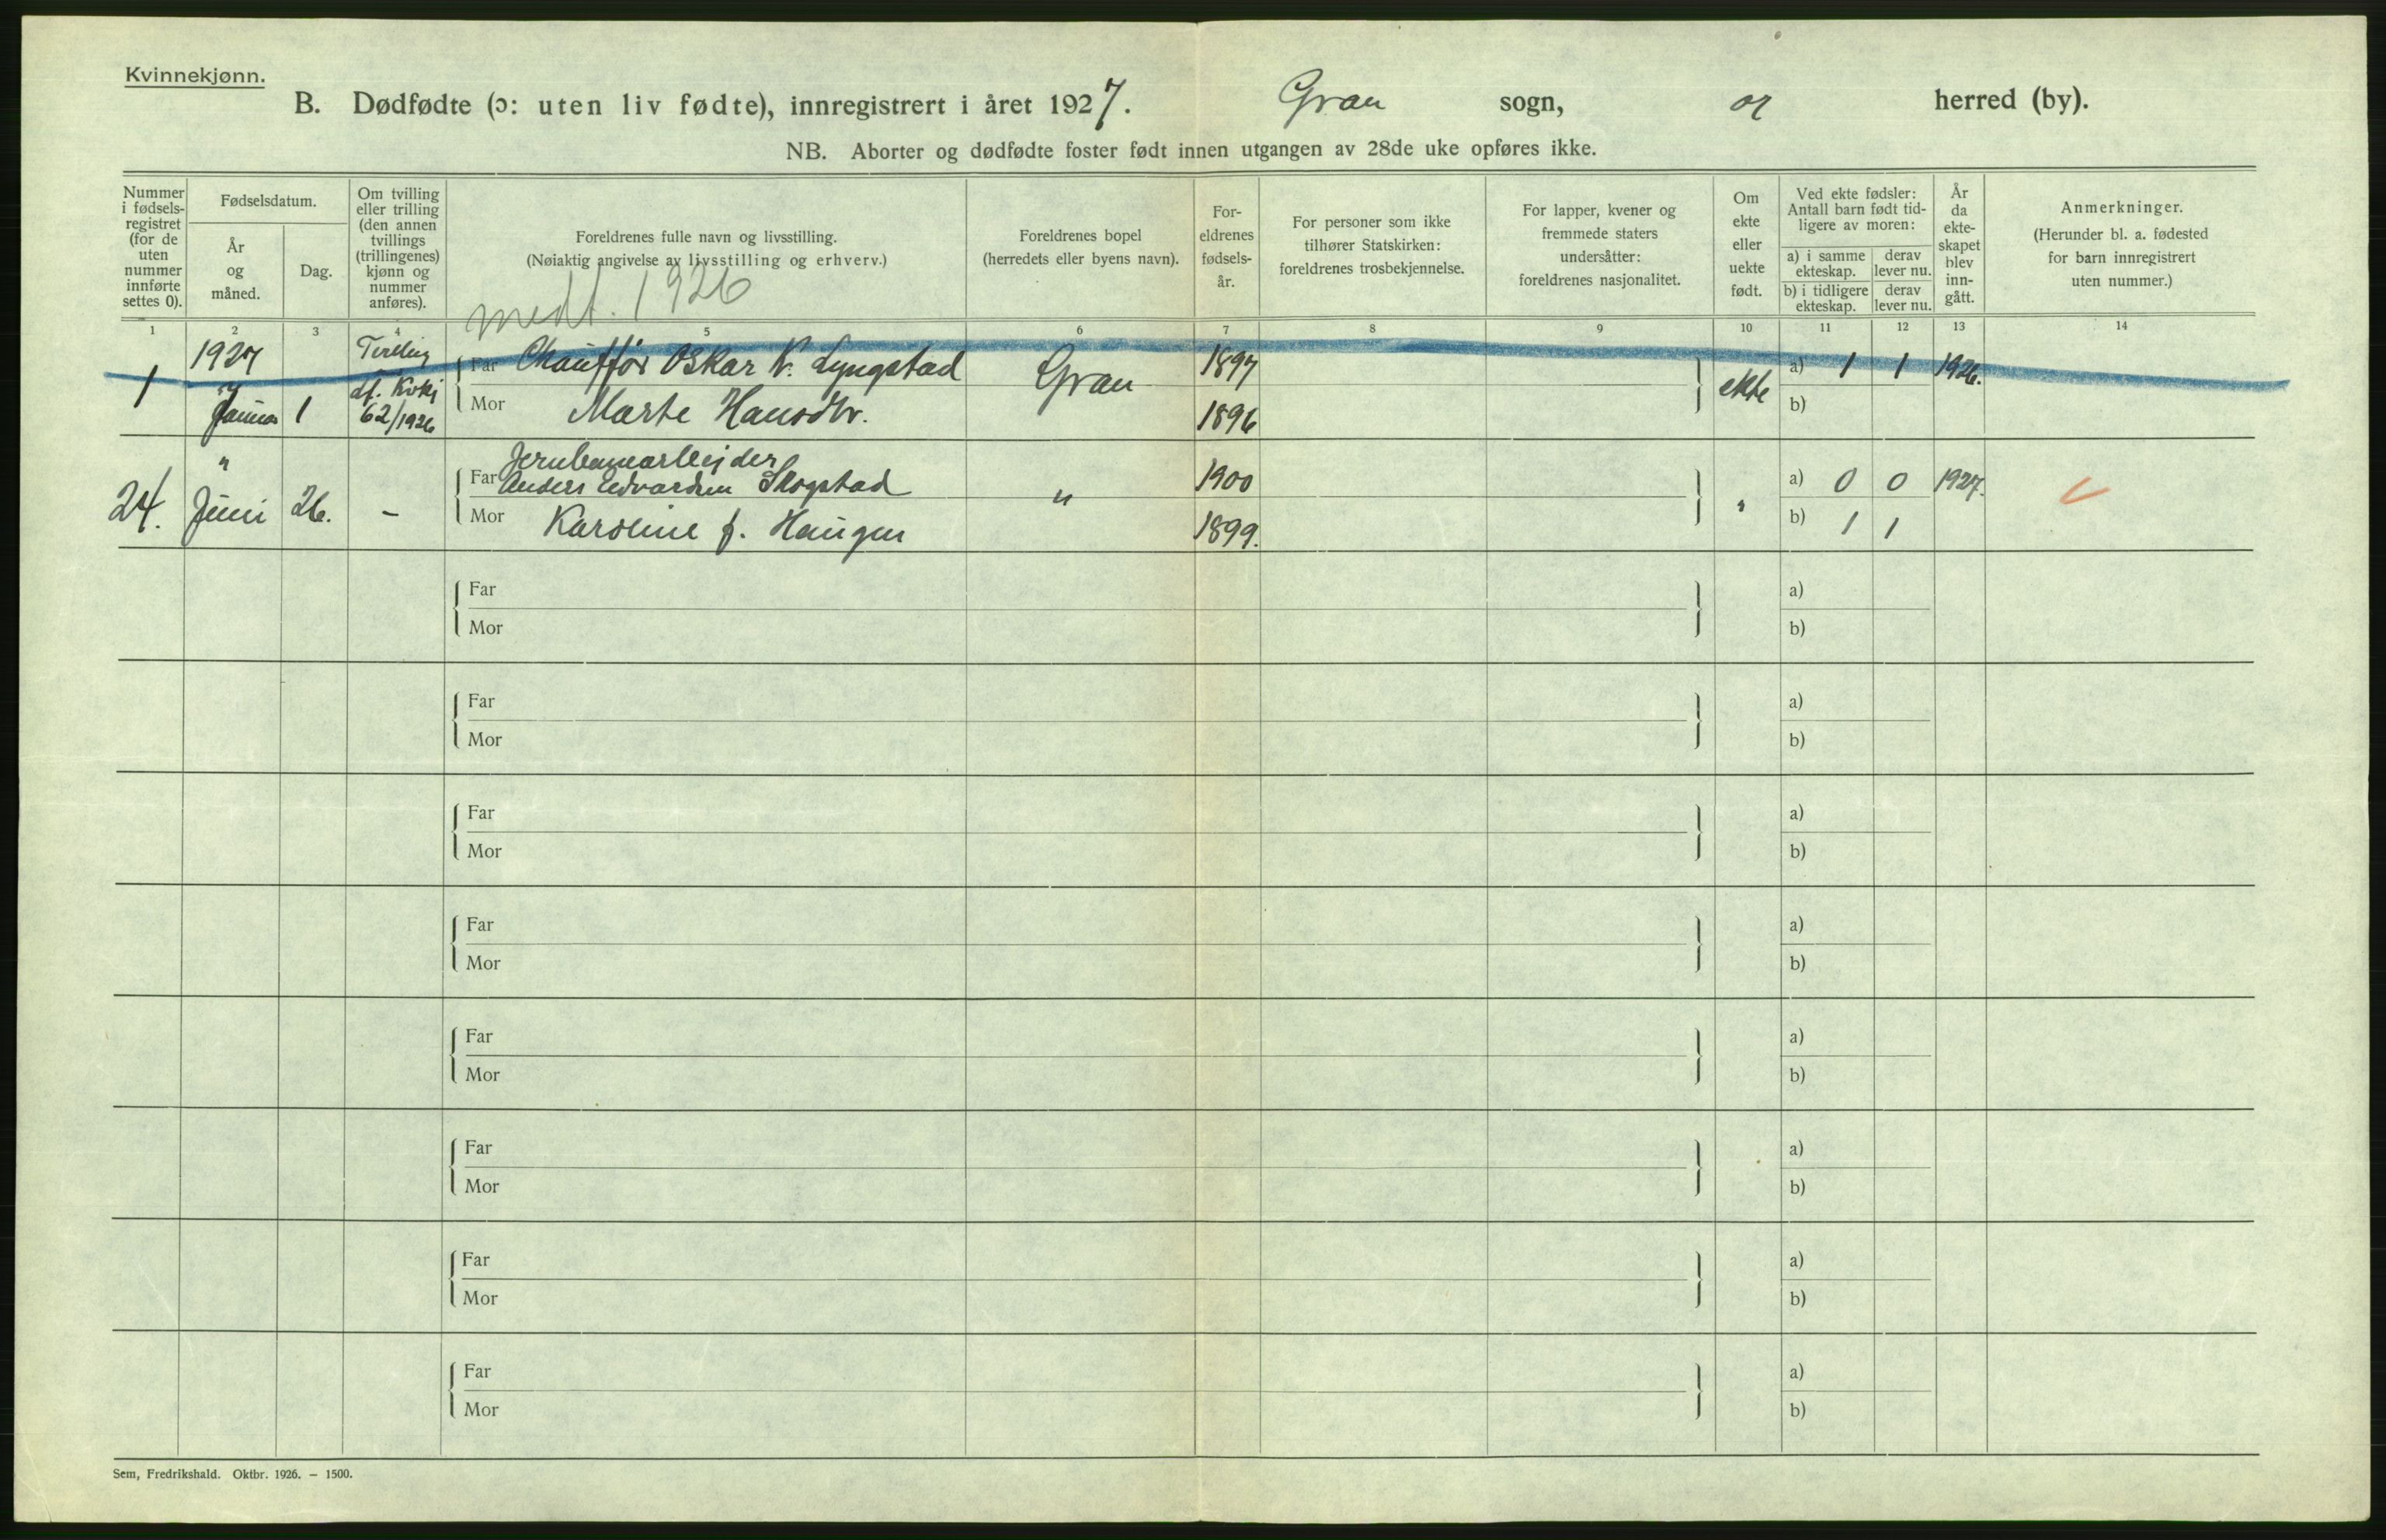 Kvinnekjønn.
B. Dødfødte (ɔ: uten liv fødte), innregistrert i året 1927. Gran sogn, og herred (by).
NB. Aborter og dødfødte foster født innen utgangen av 28de uke opføres ikke.
Nummer i fødsels-registret (for de uten nummer innførte settes 0).
Fødselsdatum.
År og måned.
Dag.
Om tvilling eller trilling (den annen tvillings (trillingenes) kjønn og nummer anføres).
Foreldrenes fulle navn og livsstilling.
(Nøiaktig angivelse av livsstilling og erhverv.)
medt. 1926
Foreldrenes bopel
(herredets eller byens navn).
For-eldrenes fødsels-år.
For personer som ikke tilhører Statskirken: foreldrenes trosbekjennelse.
For lapper, kvener og fremmede staters undersåtter: foreldrenes nasjonalitet.
Om ekte eller uekte født.
Ved ekte fødsler: Antall barn født tid-ligere av moren:
a) i samme ekteskap.
derav lever nu.
b) i tidligere ekteskap.
derav lever nu.
År da ekte-skapet blev inn-gått.
Anmerkninger.
(Herunder bl. a. fødested for barn innregistrert uten nummer.)
1 2 3 4 5 6 7 8 9 10 11 12 13 14
1 1927 Januar 1 62/1926
Far Chauffør Oskar K. Lyngstad Gran 1897 ekte a) 1 1 1926.
Mor Marte Hansdtr. 1896 b)
24. " Juni 26. –
Jernbanearbeider
Far Anders Edvardsen Skogstad " 1900 " a) 0 0 1927.
Mor Karoline f. Haugen 1899. b) 1 1
Far a)
Mor b)
Far a)
Mor b)
Far a)
Mor b)
Far a)
Mor b)
Far a)
Mor b)
Far a)
Mor b)
Far a)
Mor b)
Far a)
Mor b)
Sem, Fredrikshald. Oktbr. 1926. – 1500.